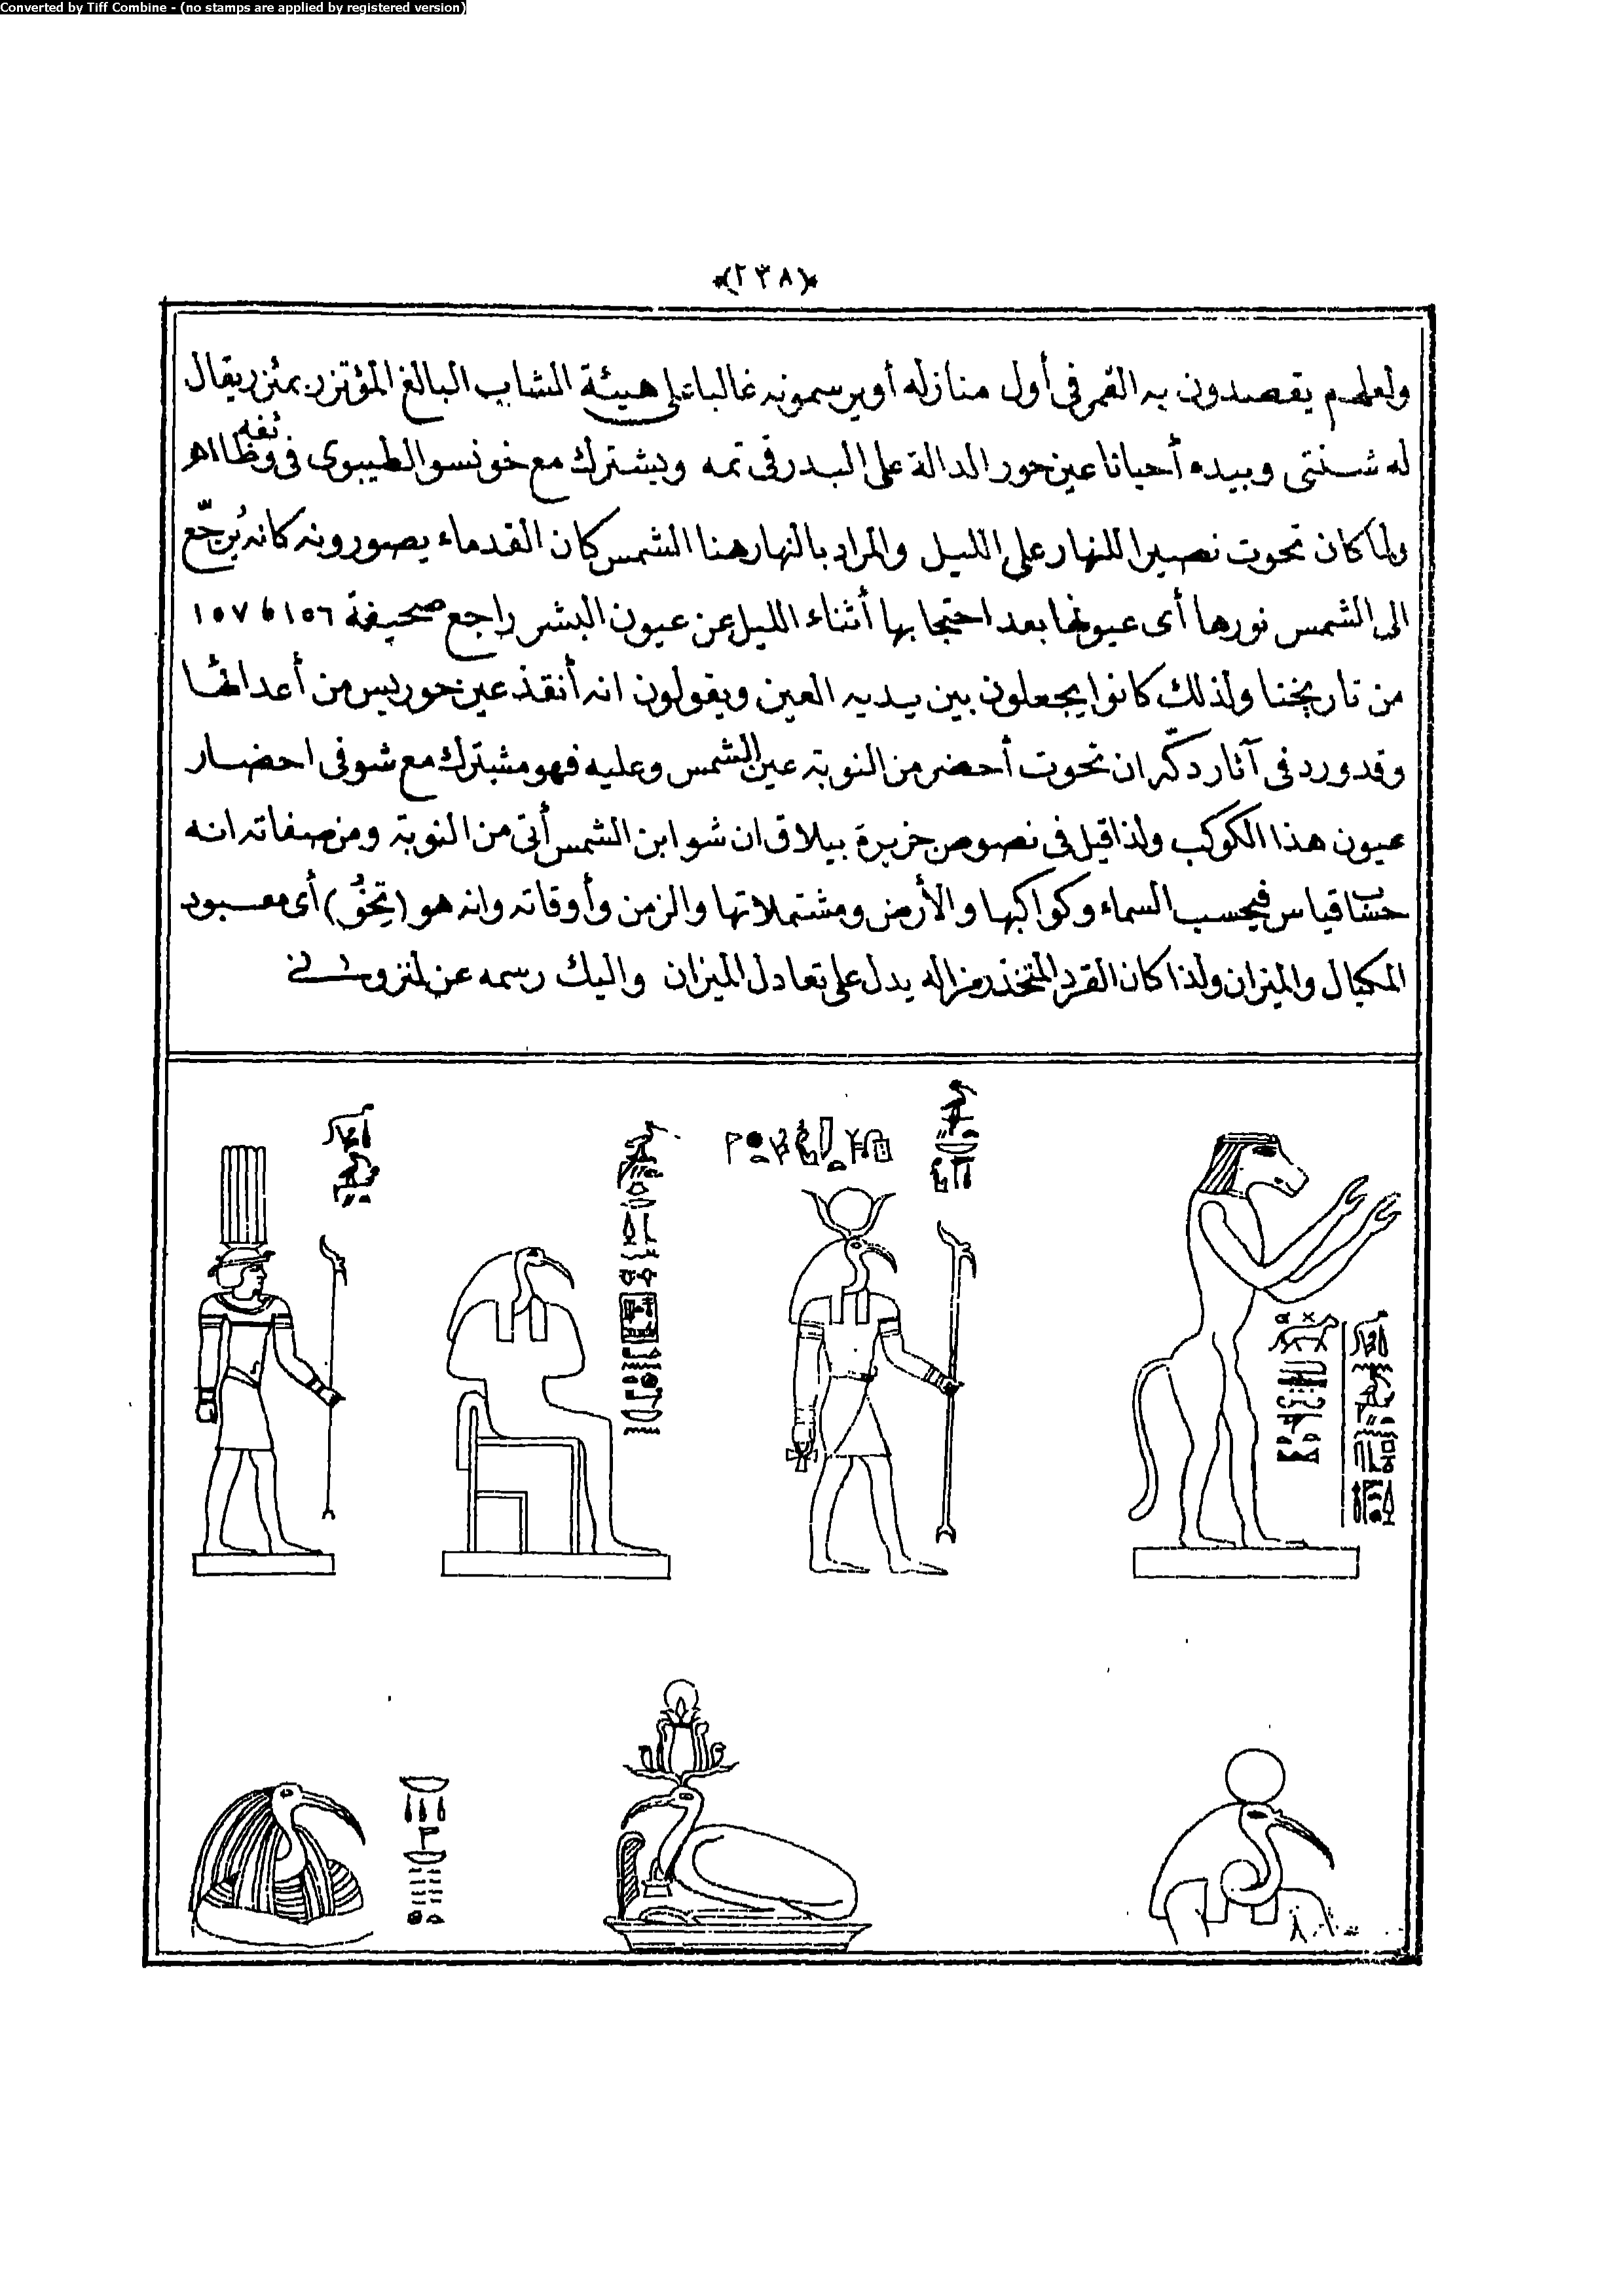 Converted by Tiff Combine - (no stamps are applied by registered version)
(٢٣٨)
ولعلهم يقصدون به القمر فى أول منازله أو يرسمونه غالبا على هيئة الشاب البالغ المؤتزر بمئزر يقال
له شنتى وبيده أحيانا عين حور الدالة على البدر فى تمه ويشترك مع خونسو الطيبوى فى وظائفه اهـ
ولما كان تحوت نصيرا للنهار على الليل والمراد بالنهار هنا الشمس كان القدماء يصورونه كانه يُرجّع
الى الشمس نورها أى عيونها بعد احتجابها أثناء الليل عن عيون البشر راجع صحيفة ١٥٦ ، ١٥٧
من تاريخنا ولذلك كانوا يجعلون بين يديه العين ويقولون انه أنقذ عين حوريس من أعدائها
وقد ورد فى آثار دكّه ان تحوت أحضر من النوبة عين الشمس وعليه فهو مشترك مع شو فى احضار
عيون هذا الكوكب ولذا قيل فى نصوص جزيرة بيلاق ان شو ابن الشمس أتى من النوبة ومن صفاته انه
حسّاب قياس فيحسب السماء وكواكبها والأرض ومشتملاتها والزمن وأوقاته وانه هو (تخُّو) أى معبود
المكيال والميزان ولذا كان القرد المتخذ رمزا له يدل على تعادل الميزان واليك رسمه عن لنزونى